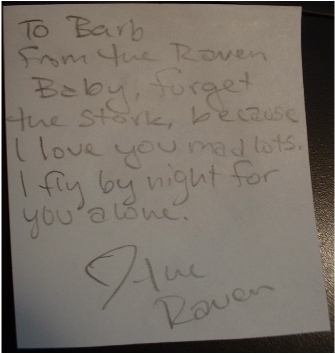 To Barb
From the Raven
Baby, forget
the stork, because
I love you mad lots.
I fly by night for
you alone.
the
Raven